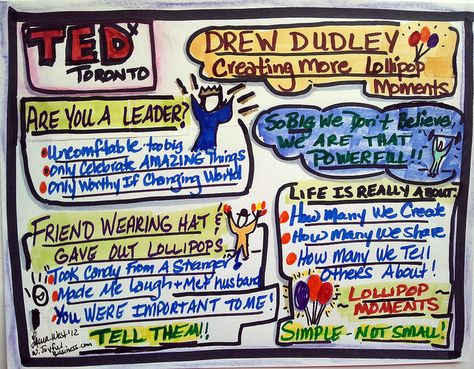 TEDx
TORONTO
DREW DUDLEY
Creating More Lollipop
Moments
ARE YOU A LEADER?
Uncomftable. too big
Only Celebrate AMAZING Things
Only Worthy If Changing World
So BIG We Don't Believe
WE ARE THAT
POWERFUL!!
FRIEND WEARING HAT &
GAVE OUT LOLLIPOPS
Took Candy from A Stranger
Made Me Laugh + Met husband
YOU WERE IMPORTANT TO ME!
TELL THEM!!
LIFE IS REALLY ABOUT:
How Many We Create
How Many We Share
How Many We Tell
Others About!
LOLLIPOP
MOMENTS
SIMPLE - NOT SMALL!
West '12